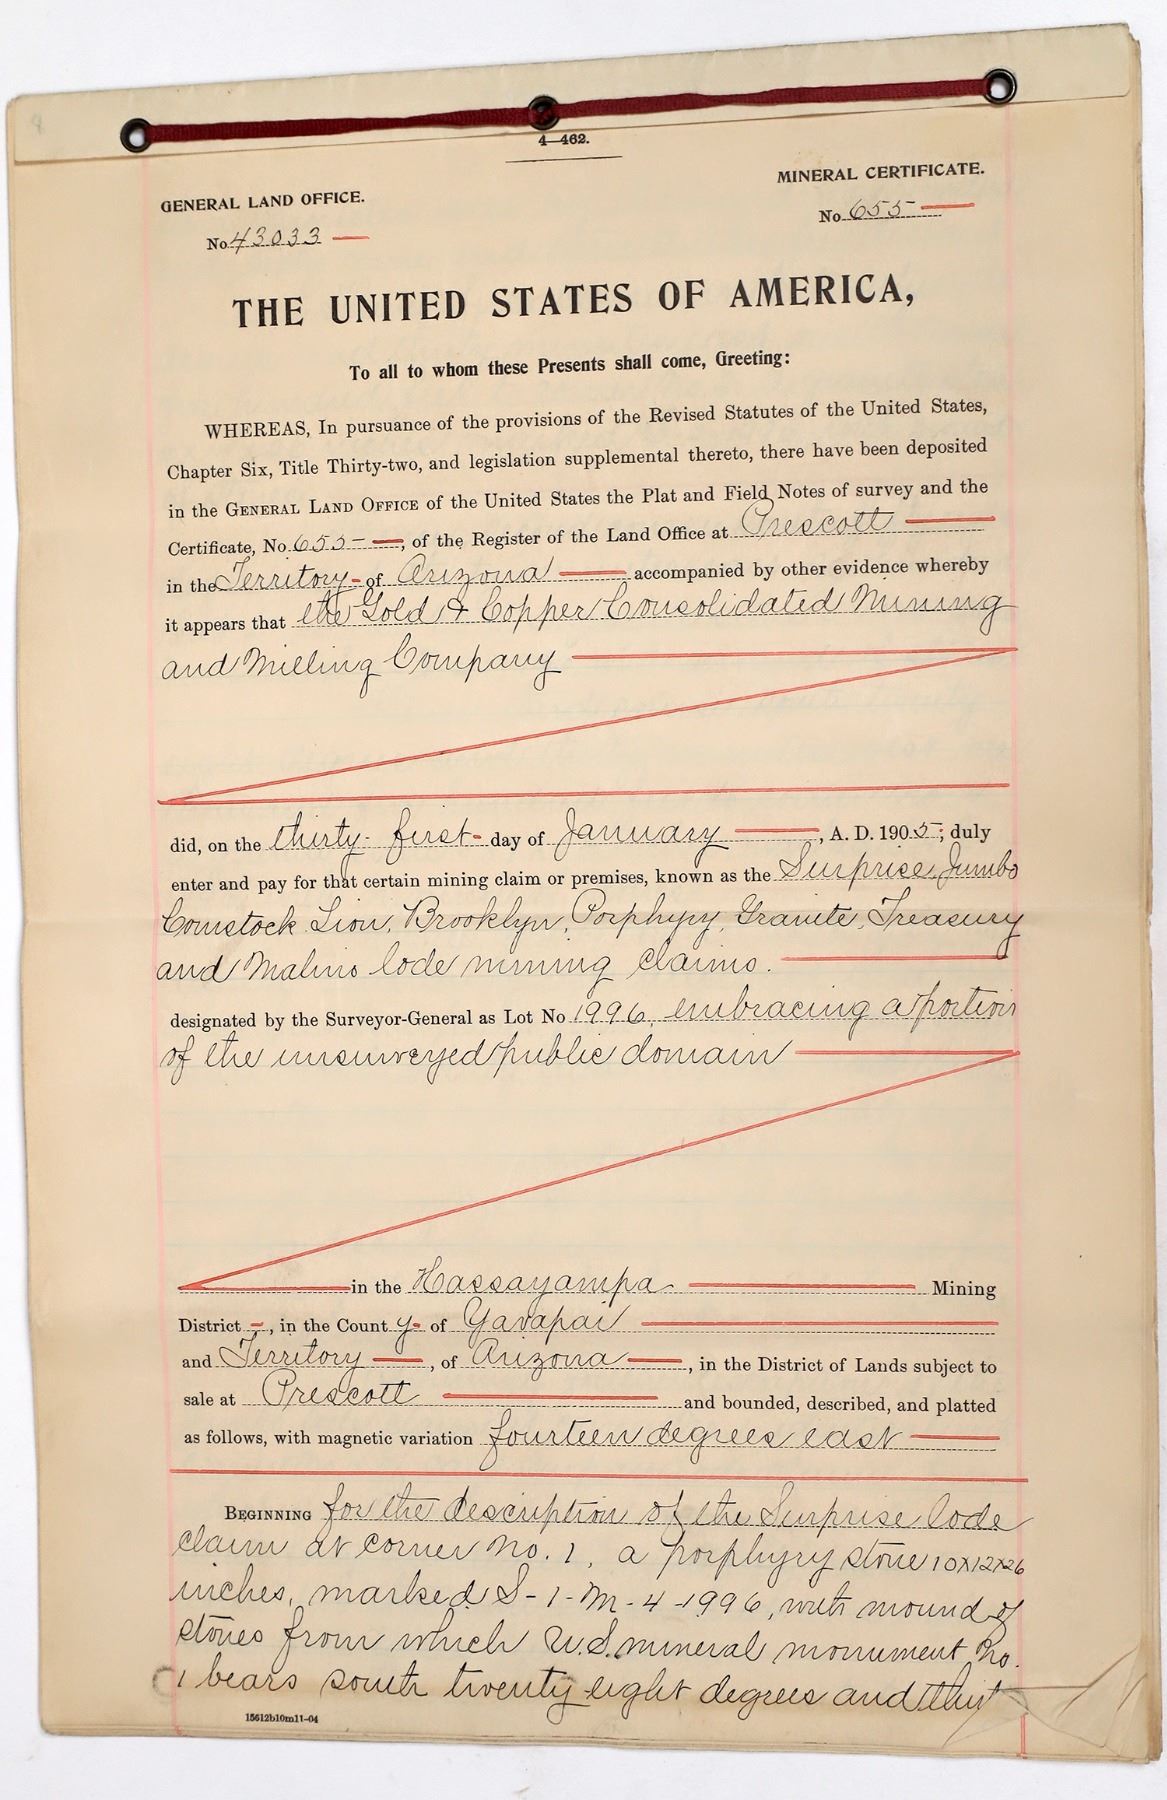 8
4—462.
GENERAL LAND OFFICE.
No 43033
MINERAL CERTIFICATE.
No 655
THE UNITED STATES OF AMERICA,
To all to whom these Presents shall come, Greeting:
WHEREAS, In pursuance of the provisions of the Revised Statutes of the United States,
Chapter Six, Title Thirty-two, and legislation supplemental thereto, there have been deposited
in the GENERAL LAND OFFICE of the United States the Plat and Field Notes of survey and the
Certificate, No. 655 —, of the Register of the Land Office at Prescott
in the Territory of Arizona accompanied by other evidence whereby
it appears that the Gold & Copper Consolidated Mining
and Milling Company
did, on the thirty-first day of January, A. D. 1905, duly
enter and pay for that certain mining claim or premises, known as the Surprise, Jumbo
Comstock Lion, Brooklyn, Porphyry, Granite, Treasury
and Malino lode mining claims.
designated by the Surveyor-General as Lot No 1996, embracing a portion
of the unsurveyed public domain
in the Hassayampa Mining
District —, in the County of Yavapai
and Territory —, of Arizona —, in the District of Lands subject to
sale at Prescott and bounded, described, and platted
as follows, with magnetic variation fourteen degrees east
BEGINNING for the description of the Surprise lode
claim at corner No. 1, a porphyry stone 10x12x26
inches, marked S-1-M-4-1996, with mound of
stones from which U.S. mineral monument No.
1 bears south twenty eight degrees and thirt
15612b10m11-04